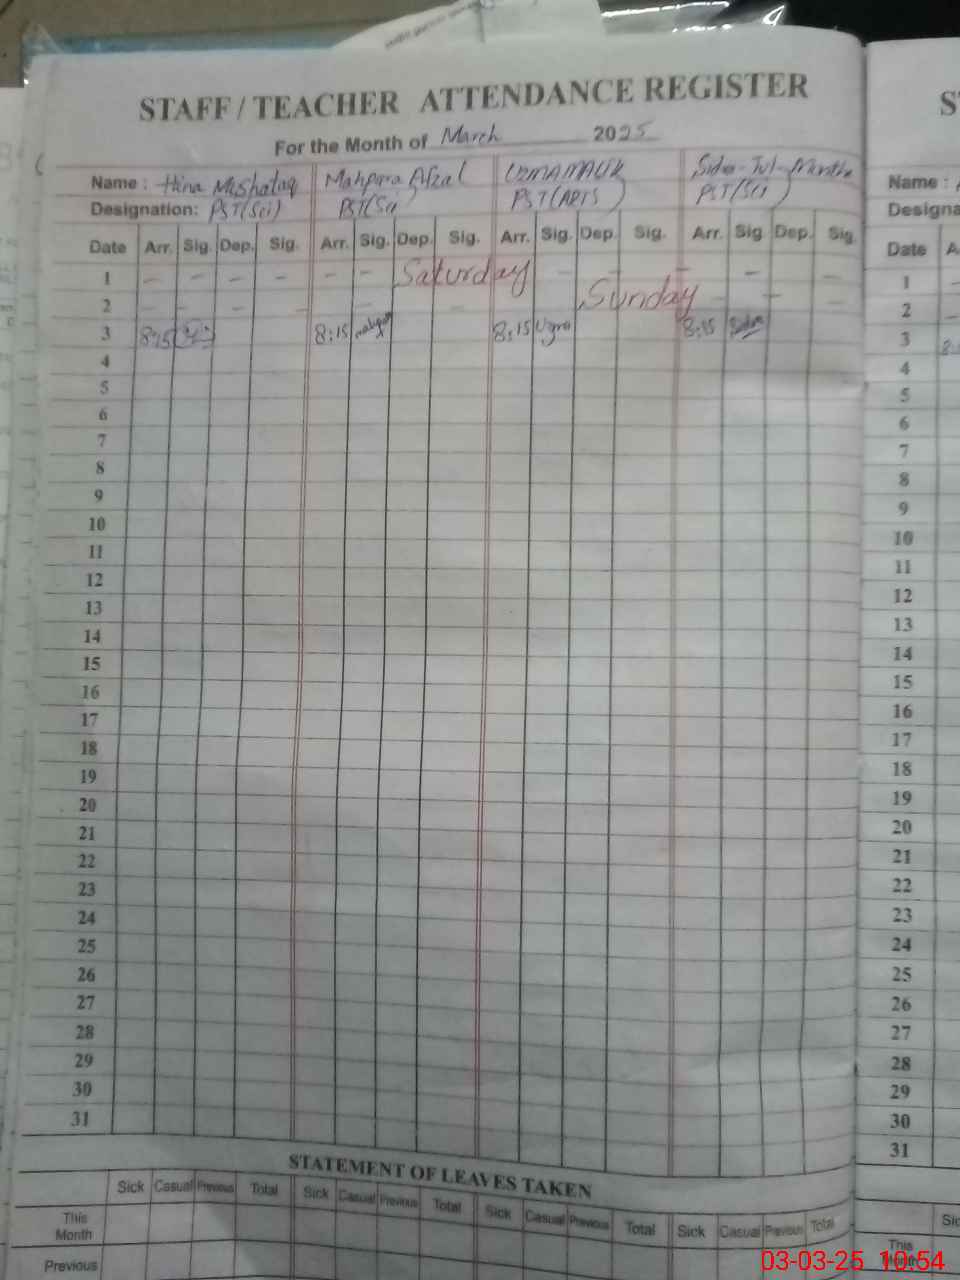 STAFF / TEACHER ATTENDANCE REGISTER
For the Month of March 2025
Name : Hina Mushataq Mahpara Afzal UZMA MALIK Sidra-Tul-Muntha
Designation: PST(Sci) PST(Sci) PST(ARTS) PST(Sci)
Date Arr. Sig. Dep. Sig. Arr. Sig. Dep. Sig. Arr. Sig. Dep. Sig. Arr. Sig Dep. Sig.
1 – – – – – – Saturday – – – – –
2 – – – – – – – Sunday – – –
3 8:15 8:15 mahpara 8:15 Uzma 8:15 Sidra
4
5
6
7
8
9
10
11
12
13
14
15
16
17
18
19
20
21
22
23
24
25
26
27
28
29
30
31
STATEMENT OF LEAVES TAKEN
Sick Casual Previous Total Sick Casual Previous Total Sick Casual Previous Total Sick Casual Previous Total
This Month
Previous
Name :
Date
1
2
3
4
5
6
7
8
9
10
11
12
13
14
15
16
17
18
19
20
21
22
23
24
25
26
27
28
29
30
31
This
03-03-25 10:54